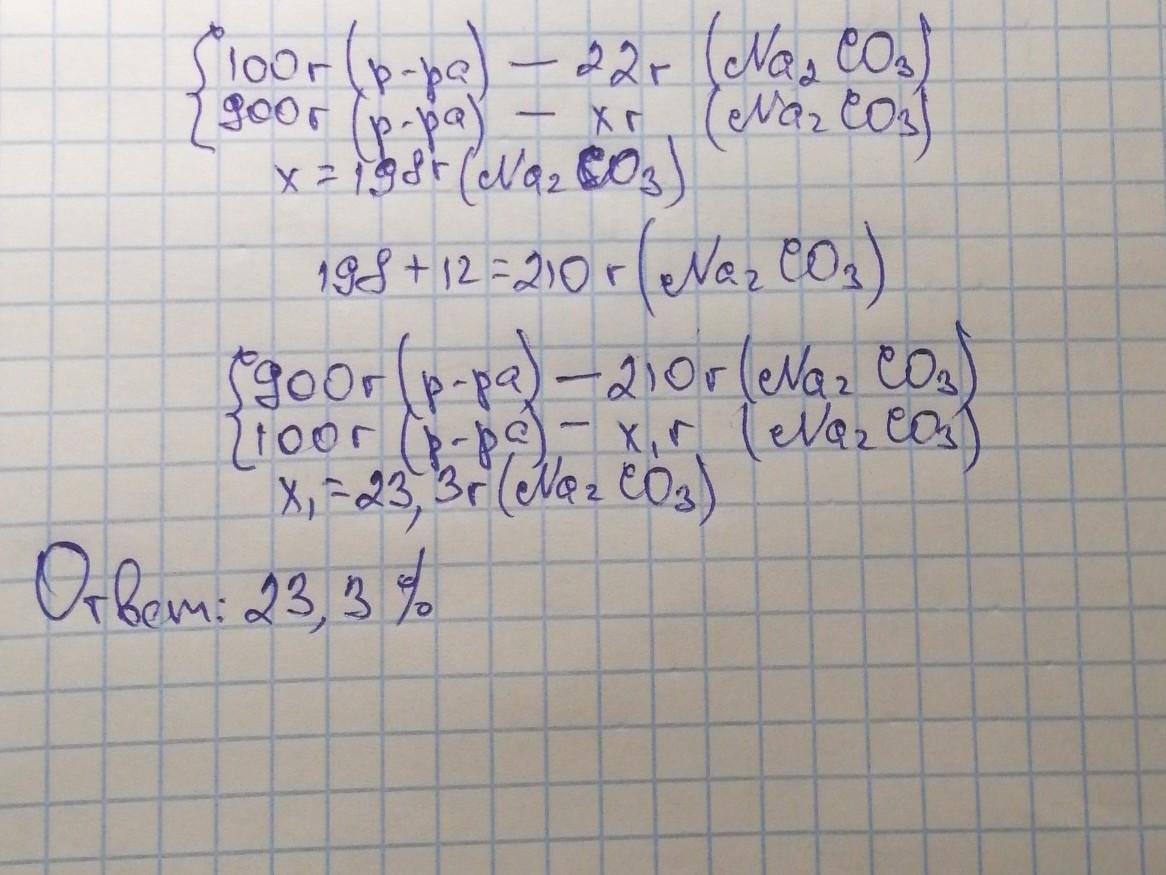 100г (р-ра) — 22г (Na₂CO₃)
900г (р-ра) — xг (Na₂CO₃)
x = 198г (Na₂CO₃)
198 + 12 = 210 г (Na₂CO₃)
900г (р-ра) — 210 г (Na₂CO₃)
100г (р-ра) — x₁г (Na₂CO₃)
x₁ = 23,3г (Na₂CO₃)
Ответ: 23,3 %